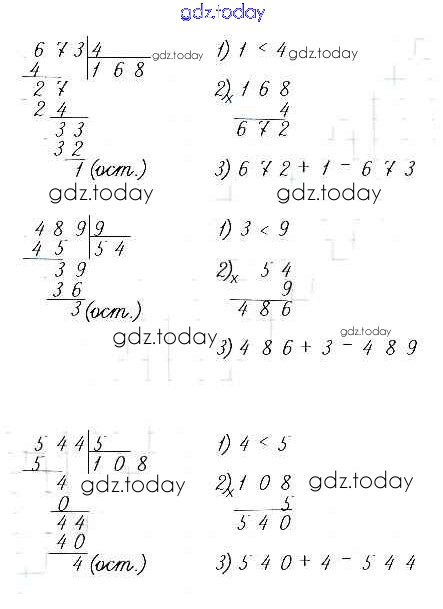 gdz.today
673 4 gdz.today 1) 1 < 4 gdz.today
4 168
27 2) x 168
24 4
33 672
32
1 (ост.) 3) 672 + 1 - 673
gdz.today gdz.today
489 9 1) 3 < 9
45 54
39 2) x 54
36 9
3 (ост.) 486
gdz.today gdz.today
3) 486 + 3 - 489
544 5 1) 4 < 5
5 108
4 gdz.today 2) x 108 gdz.today
0 5
44 540
40
4 (ост.) 3) 540 + 4 - 544